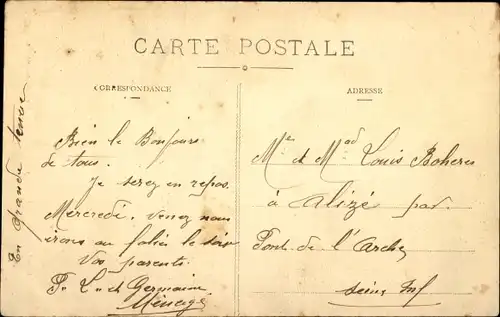 CARTE POSTALE
CORRESPONDANCE
ADRESSE
En grande tenue
Bien le Bonjours
de tous.
Je serez en repos
Mercredi. Venez nous
irons au folies le soir
Vos parents
L. et Germaine
Ménage
Mr et Mad Louis Boheres
à Alizé par
Pont de l'Arche
Seine Inf